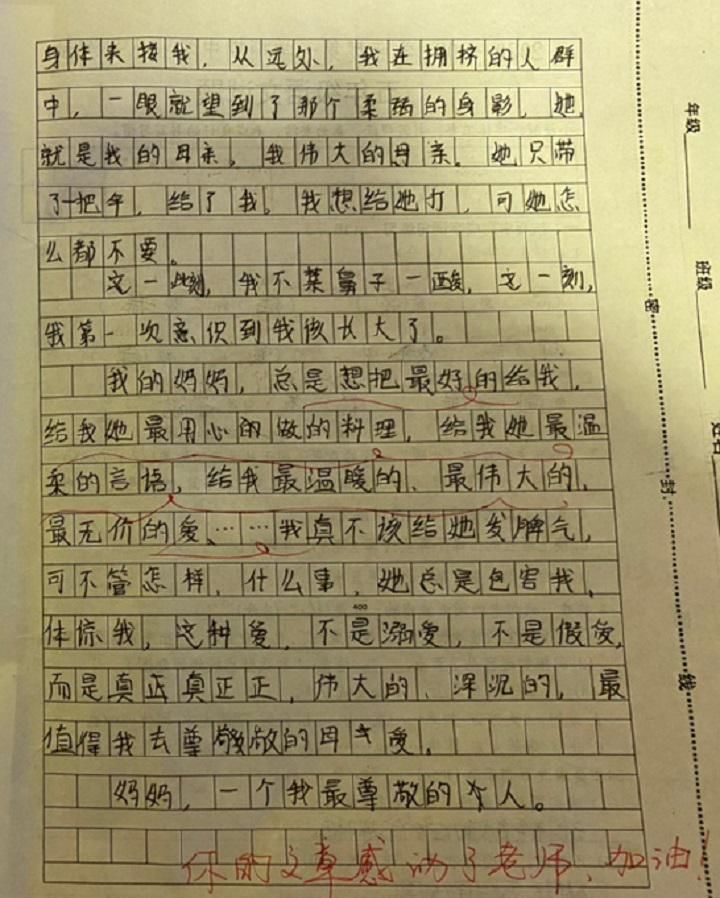 身体来接我，从远处，我在拥挤的人群
中，一眼就望到了那个柔弱的身影，她，
就是我的母亲，我伟大的母亲。她只带
了一把伞，给了我。我想给她打，可她怎
么都不要。
这一刻，我不禁鼻子一酸，这一刻，
我第一次意识到我该长大了。
我的妈妈，总是想把最好的给我，
给我她最用心的做的料理，给我她最温
柔的言语，给我最温暖的、最伟大的、
最无价的爱……我真不该给她发脾气，
可不管怎样，什么事，她总是包容我，
体谅我，这种爱，不是溺爱，不是假爱，
400
而是真正真正正，伟大的、深沉的，最
值得我去尊敬敬的母爱。
妈妈，一个我最尊敬的人。
你的文章感动了老师，加油！
年级
班级
姓名
密
封
线